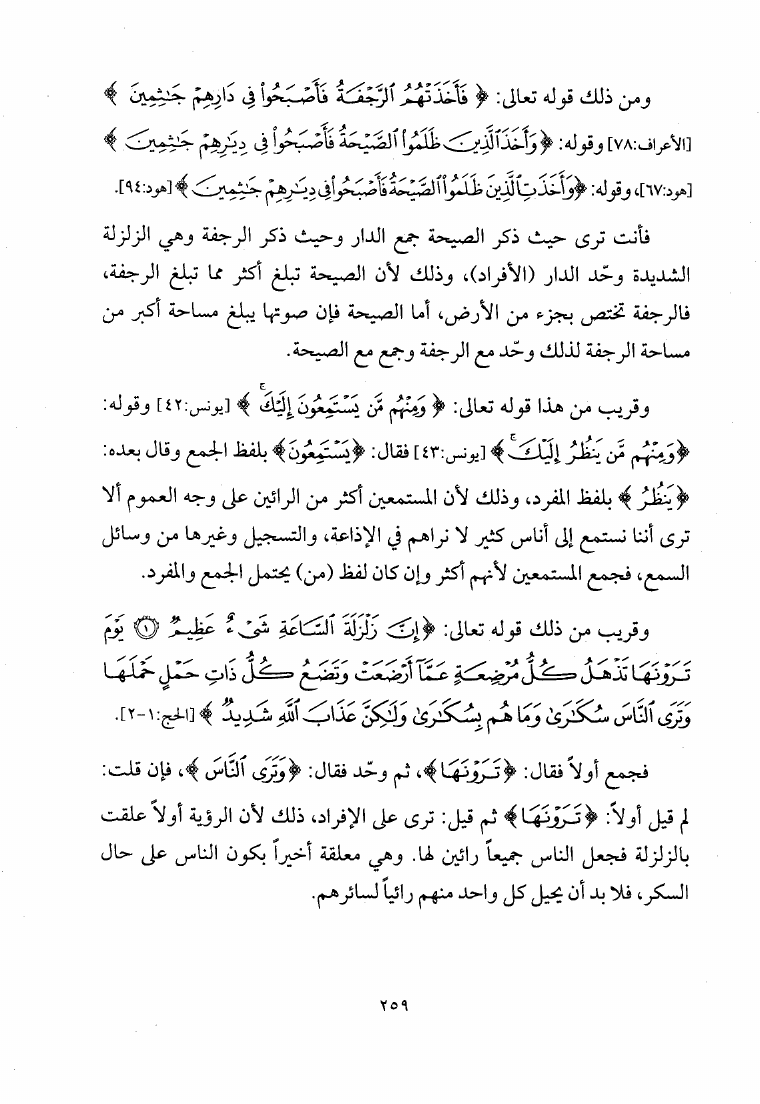 ومن ذلك قوله تعالى: ﴿ فَأَخَذَتْهُمُ ٱلرَّجْفَةُ فَأَصْبَحُوا۟ فِى دَارِهِمْ جَٰثِمِينَ ﴾
[الأعراف:٧٨] وقوله: ﴿وَأَخَذَ ٱلَّذِينَ ظَلَمُوا۟ ٱلصَّيْحَةُ فَأَصْبَحُوا۟ فِى دِيَٰرِهِمْ جَٰثِمِينَ ﴾
[هود:٦٧]، وقوله: ﴿وَأَخَذَتِ ٱلَّذِينَ ظَلَمُوا۟ ٱلصَّيْحَةُ فَأَصْبَحُوا۟ فِى دِيَٰرِهِمْ جَٰثِمِينَ ﴾[هود:٩٤].
فأنت ترى حيث ذكر الصيحة جمع الدار وحيث ذكر الرجفة وهي الزلزلة
الشديدة وحّد الدار (الأفراد)، وذلك لأن الصيحة تبلغ أكثر مما تبلغ الرجفة،
فالرجفة تختص بجزء من الأرض، أما الصيحة فإن صوتها يبلغ مساحة أكبر من
مساحة الرجفة لذلك وحّد مع الرجفة وجمع مع الصيحة.
وقريب من هذا قوله تعالى: ﴿ وَمِنْهُم مَّن يَسْتَمِعُونَ إِلَيْكَ ۚ ﴾ [يونس:٤٢] وقوله:
﴿وَمِنْهُم مَّن يَنظُرُ إِلَيْكَ ۚ ﴾ [يونس:٤٣] فقال: ﴿يَسْتَمِعُونَ﴾ بلفظ الجمع وقال بعده:
﴿يَنظُرُ ﴾ بلفظ المفرد، وذلك لأن المستمعين أكثر من الرائين على وجه العموم ألا
ترى أننا نستمع إلى أناس كثير لا نراهم في الإذاعة، والتسجيل وغيرها من وسائل
السمع، فجمع المستمعين لأنهم أكثر وإن كان لفظ (من) يحتمل الجمع والمفرد.
وقريب من ذلك قوله تعالى: ﴿إِنَّ زَلْزَلَةَ ٱلسَّاعَةِ شَىْءٌ عَظِيمٌ ۝١ يَوْمَ
تَرَوْنَهَا تَذْهَلُ كُلُّ مُرْضِعَةٍ عَمَّآ أَرْضَعَتْ وَتَضَعُ كُلُّ ذَاتِ حَمْلٍ حَمْلَهَا
وَتَرَى ٱلنَّاسَ سُكَٰرَىٰ وَمَا هُم بِسُكَٰرَىٰ وَلَٰكِنَّ عَذَابَ ٱللَّهِ شَدِيدٌ ﴾ [الحج:١-٢].
فجمع أولاً فقال: ﴿تَرَوْنَهَا﴾، ثم وحّد فقال: ﴿وَتَرَى ٱلنَّاسَ ﴾، فإن قلت:
لم قيل أولاً: ﴿تَرَوْنَهَا﴾ ثم قيل: ترى على الإفراد، ذلك لأن الرؤية أولاً علقت
بالزلزلة فجعل الناس جميعاً رائين لها. وهي معلقة أخيراً بكون الناس على حال
السكر، فلا بد أن يحيل كل واحد منهم رائياً لسائرهم.
٢٥٩